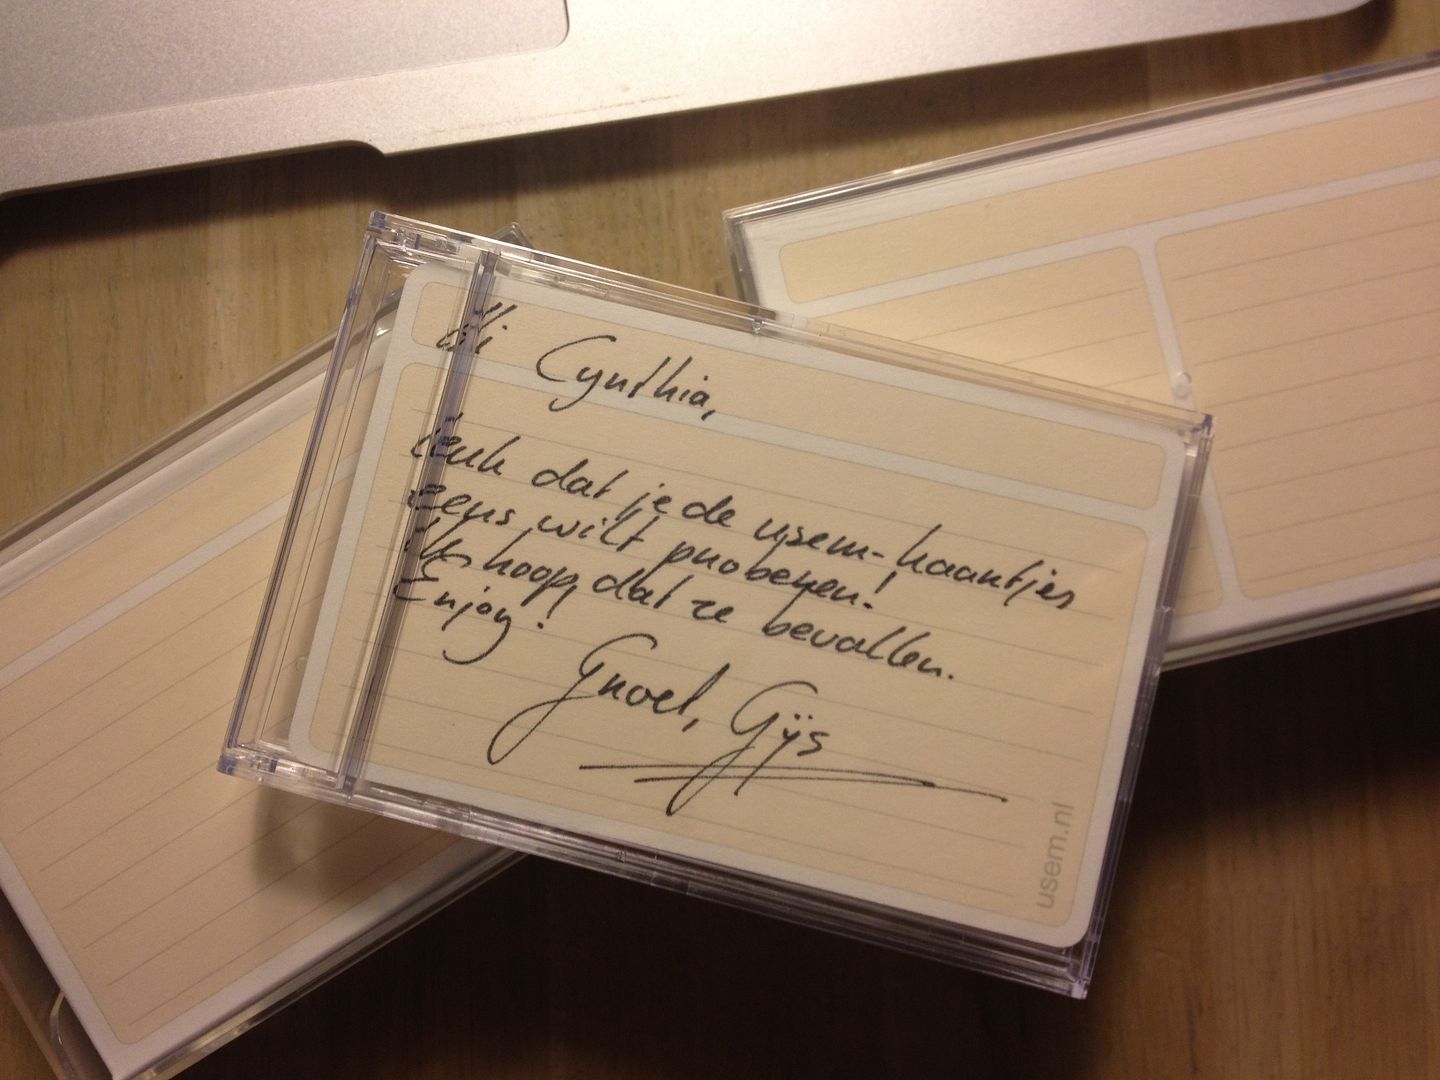 Hi Cynthia,
leuk dat je de usem-kaartjes
eens wilt proberen!
Ik hoop dat ze bevallen.
Enjoy!
Groet, Gijs
usem.nl